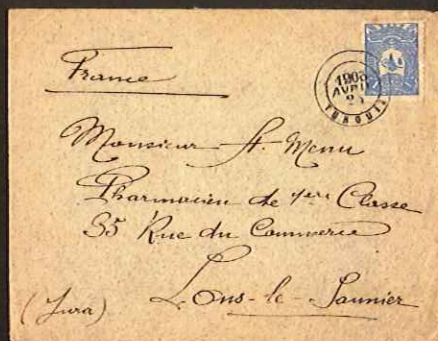 France
1908
AVRIL
TURQUIE
Monsieur St. Menu
Pharmacien de 1ère Classe
35 Rue du Commerce
Lons-le-Saunier
(Jura)